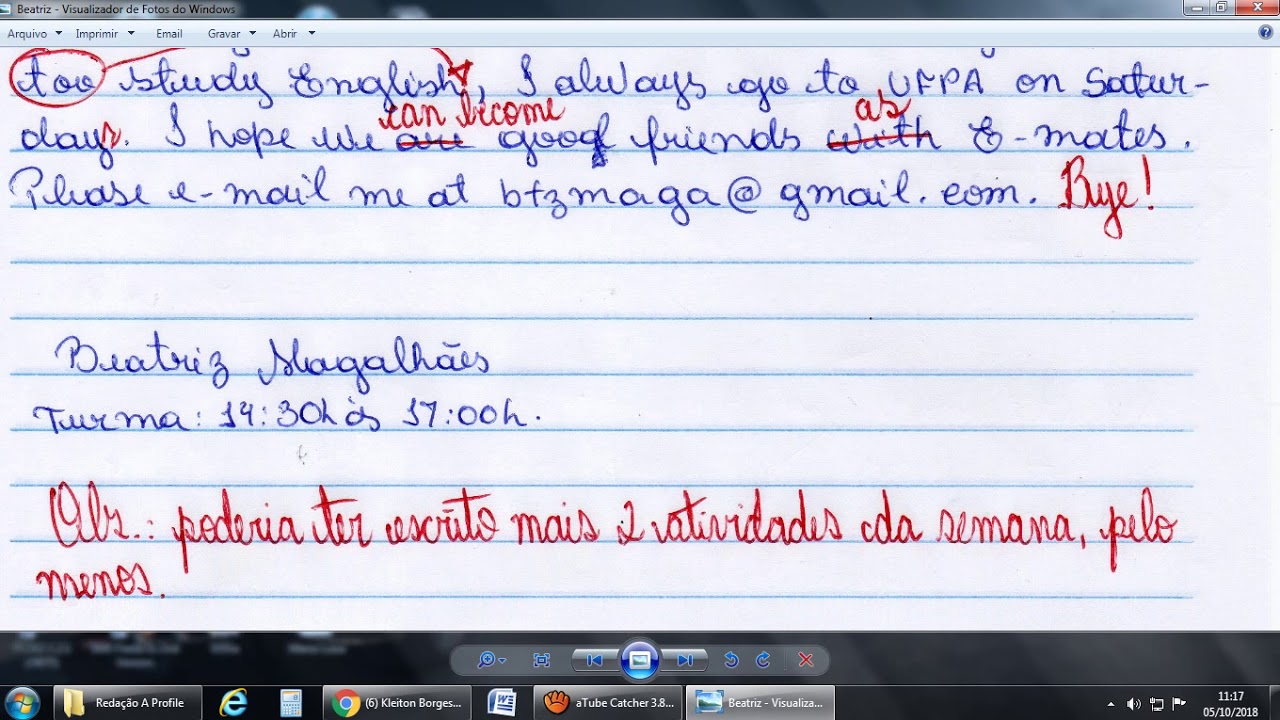 Beatriz - Visualizador de Fotos do Windows
Arquivo Imprimir Email Gravar Abrir
too study English, I always go to UFPA on Satur-
can become as
days. I hope we are good friends with E-mates.
Please e-mail me at btzmaga@gmail.com. Bye!
Beatriz Magalhães
Turma: 14:30h às 17:00h.
Obs.: poderia ter escrito mais 2 atividades da semana, pelo
menos.
Redação A Profile
(6) Kleiton Borges...
aTube Catcher 3.8...
Beatriz - Visualiza...
11:17
05/10/2018